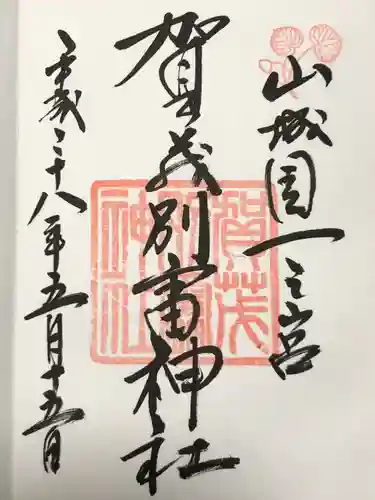 山城国一之宮
賀茂別雷神社
平成二十八年五月十五日
賀茂
別雷
神社